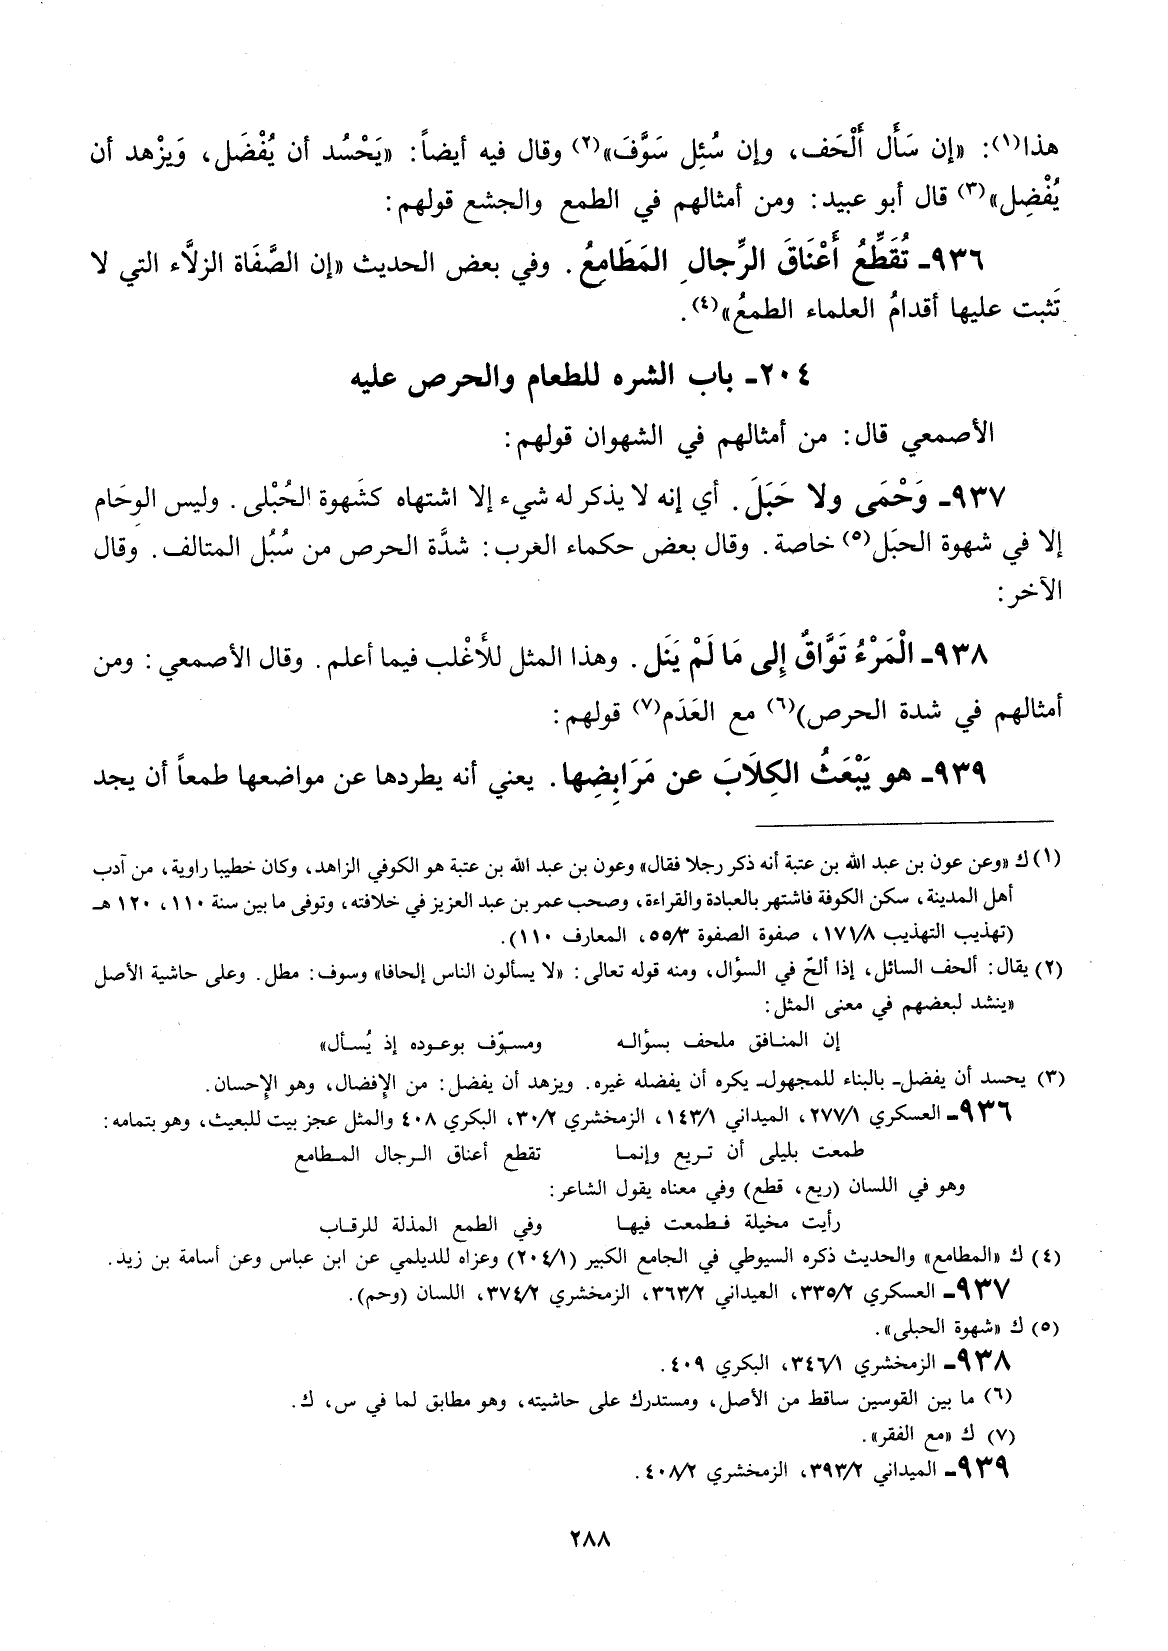 هذا(١): «إن سَأَل أَلْحَف، وإن سُئِل سَوَّفَ»(٢) وقال فيه أيضاً: «يَحْسُد أن يُفْضَل، وَيزْهد أن
يُفْضِل»(٣) قال أبو عبيد: ومن أمثالهم في الطمع والجشع قولهم:
٩٣٦ـ تُقَطِّعُ أَعْنَاقَ الرِّجالِ المَطَامِعُ. وفي بعض الحديث «إن الصَّفَاة الزلَّاء التي لا
تَثبت عليها أقدامُ العلماء الطمعُ»(٤).
٢٠٤ـ باب الشره للطعام والحرص عليه
الأصمعي قال: من أمثالهم في الشهوان قولهم:
٩٣٧ـ وَحْمَى ولا حَبَلَ. أي إنه لا يذكر له شيء إلا اشتهاه كشَهوة الحُبْلى. وليس الوِحَام
إلا في شهوة الحبَل(٥) خاصة. وقال بعض حكماء الغرب: شدَّة الحرص من سُبُل المتالف. وقال
الآخر:
٩٣٨ـ الْمَرْءُ تَوَّاقٌ إِلى مَا لَمْ يَنَل. وهذا المثل للأَغْلب فيما أعلم. وقال الأصمعي: ومن
أمثالهم في شدة الحرص)(٦) مع العَدَم(٧) قولهم:
٩٣٩ـ هو يَبْعَثُ الكِلَابَ عن مَرَابِضِها. يعني أنه يطردها عن مواضعها طمعاً أن يجد
(١) ك «وعن عون بن عبد الله بن عتبة أنه ذكر رجلا فقال» وعون بن عبد الله بن عتبة هو الكوفي الزاهد، وكان خطيبا راوية، من آدب
أهل المدينة، سكن الكوفة فاشتهر بالعبادة والقراءة، وصحب عمر بن عبد العزيز في خلافته، وتوفى ما بين سنة ١١٠، ١٢٠ هـ
(تهذيب التهذيب ١٧١/٨، صفوة الصفوة ٥٥/٣، المعارف ١١٠).
(٢) يقال: ألحف السائل، إذا ألحّ في السؤال، ومنه قوله تعالى: «لا يسألون الناس إلحافا» وسوف: مطل. وعلى حاشية الأصل
«ينشد لبعضهم في معنى المثل:
إن المنافق ملحف بسؤاله ومسوّف بوعوده إذ يُسأل»
(٣) يحسد أن يفضل ـ بالبناء للمجهول ـ يكره أن يفضله غيره. ويزهد أن يفضل: من الإفضال، وهو الإحسان.
٩٣٦ـ العسكري ٢٧٧/١، الميداني ١٤٣/١، الزمخشري ٣٠/٢، البكري ٤٠٨ والمثل عجز بيت للبعيث، وهو بتمامه:
طمعت بليلى أن تريع وإنما تقطع أعناق الرجال المطامع
وهو في اللسان (ريع، قطع) وفي معناه يقول الشاعر:
رأيت مخيلة فطمعت فيها وفي الطمع المذلة للرقاب
(٤) ك «المطامع» والحديث ذكره السيوطي في الجامع الكبير (٢٠٤/١) وعزاه للديلمي عن ابن عباس وعن أسامة بن زيد.
٩٣٧ـ العسكري ٣٣٥/٢، الميداني ٣٦٣/٢، الزمخشري ٣٧٤/٢، اللسان (وحم).
(٥) ك «شهوة الحبلى».
٩٣٨ـ الزمخشري ٣٤٦/١، البكري ٤٠٩.
(٦) ما بين القوسين ساقط من الأصل، ومستدرك على حاشيته، وهو مطابق لما في س، ك.
(٧) ك «مع الفقر».
٩٣٩ـ الميداني ٣٩٣/٢، الزمخشري ٤٠٨/٢.
٢٨٨